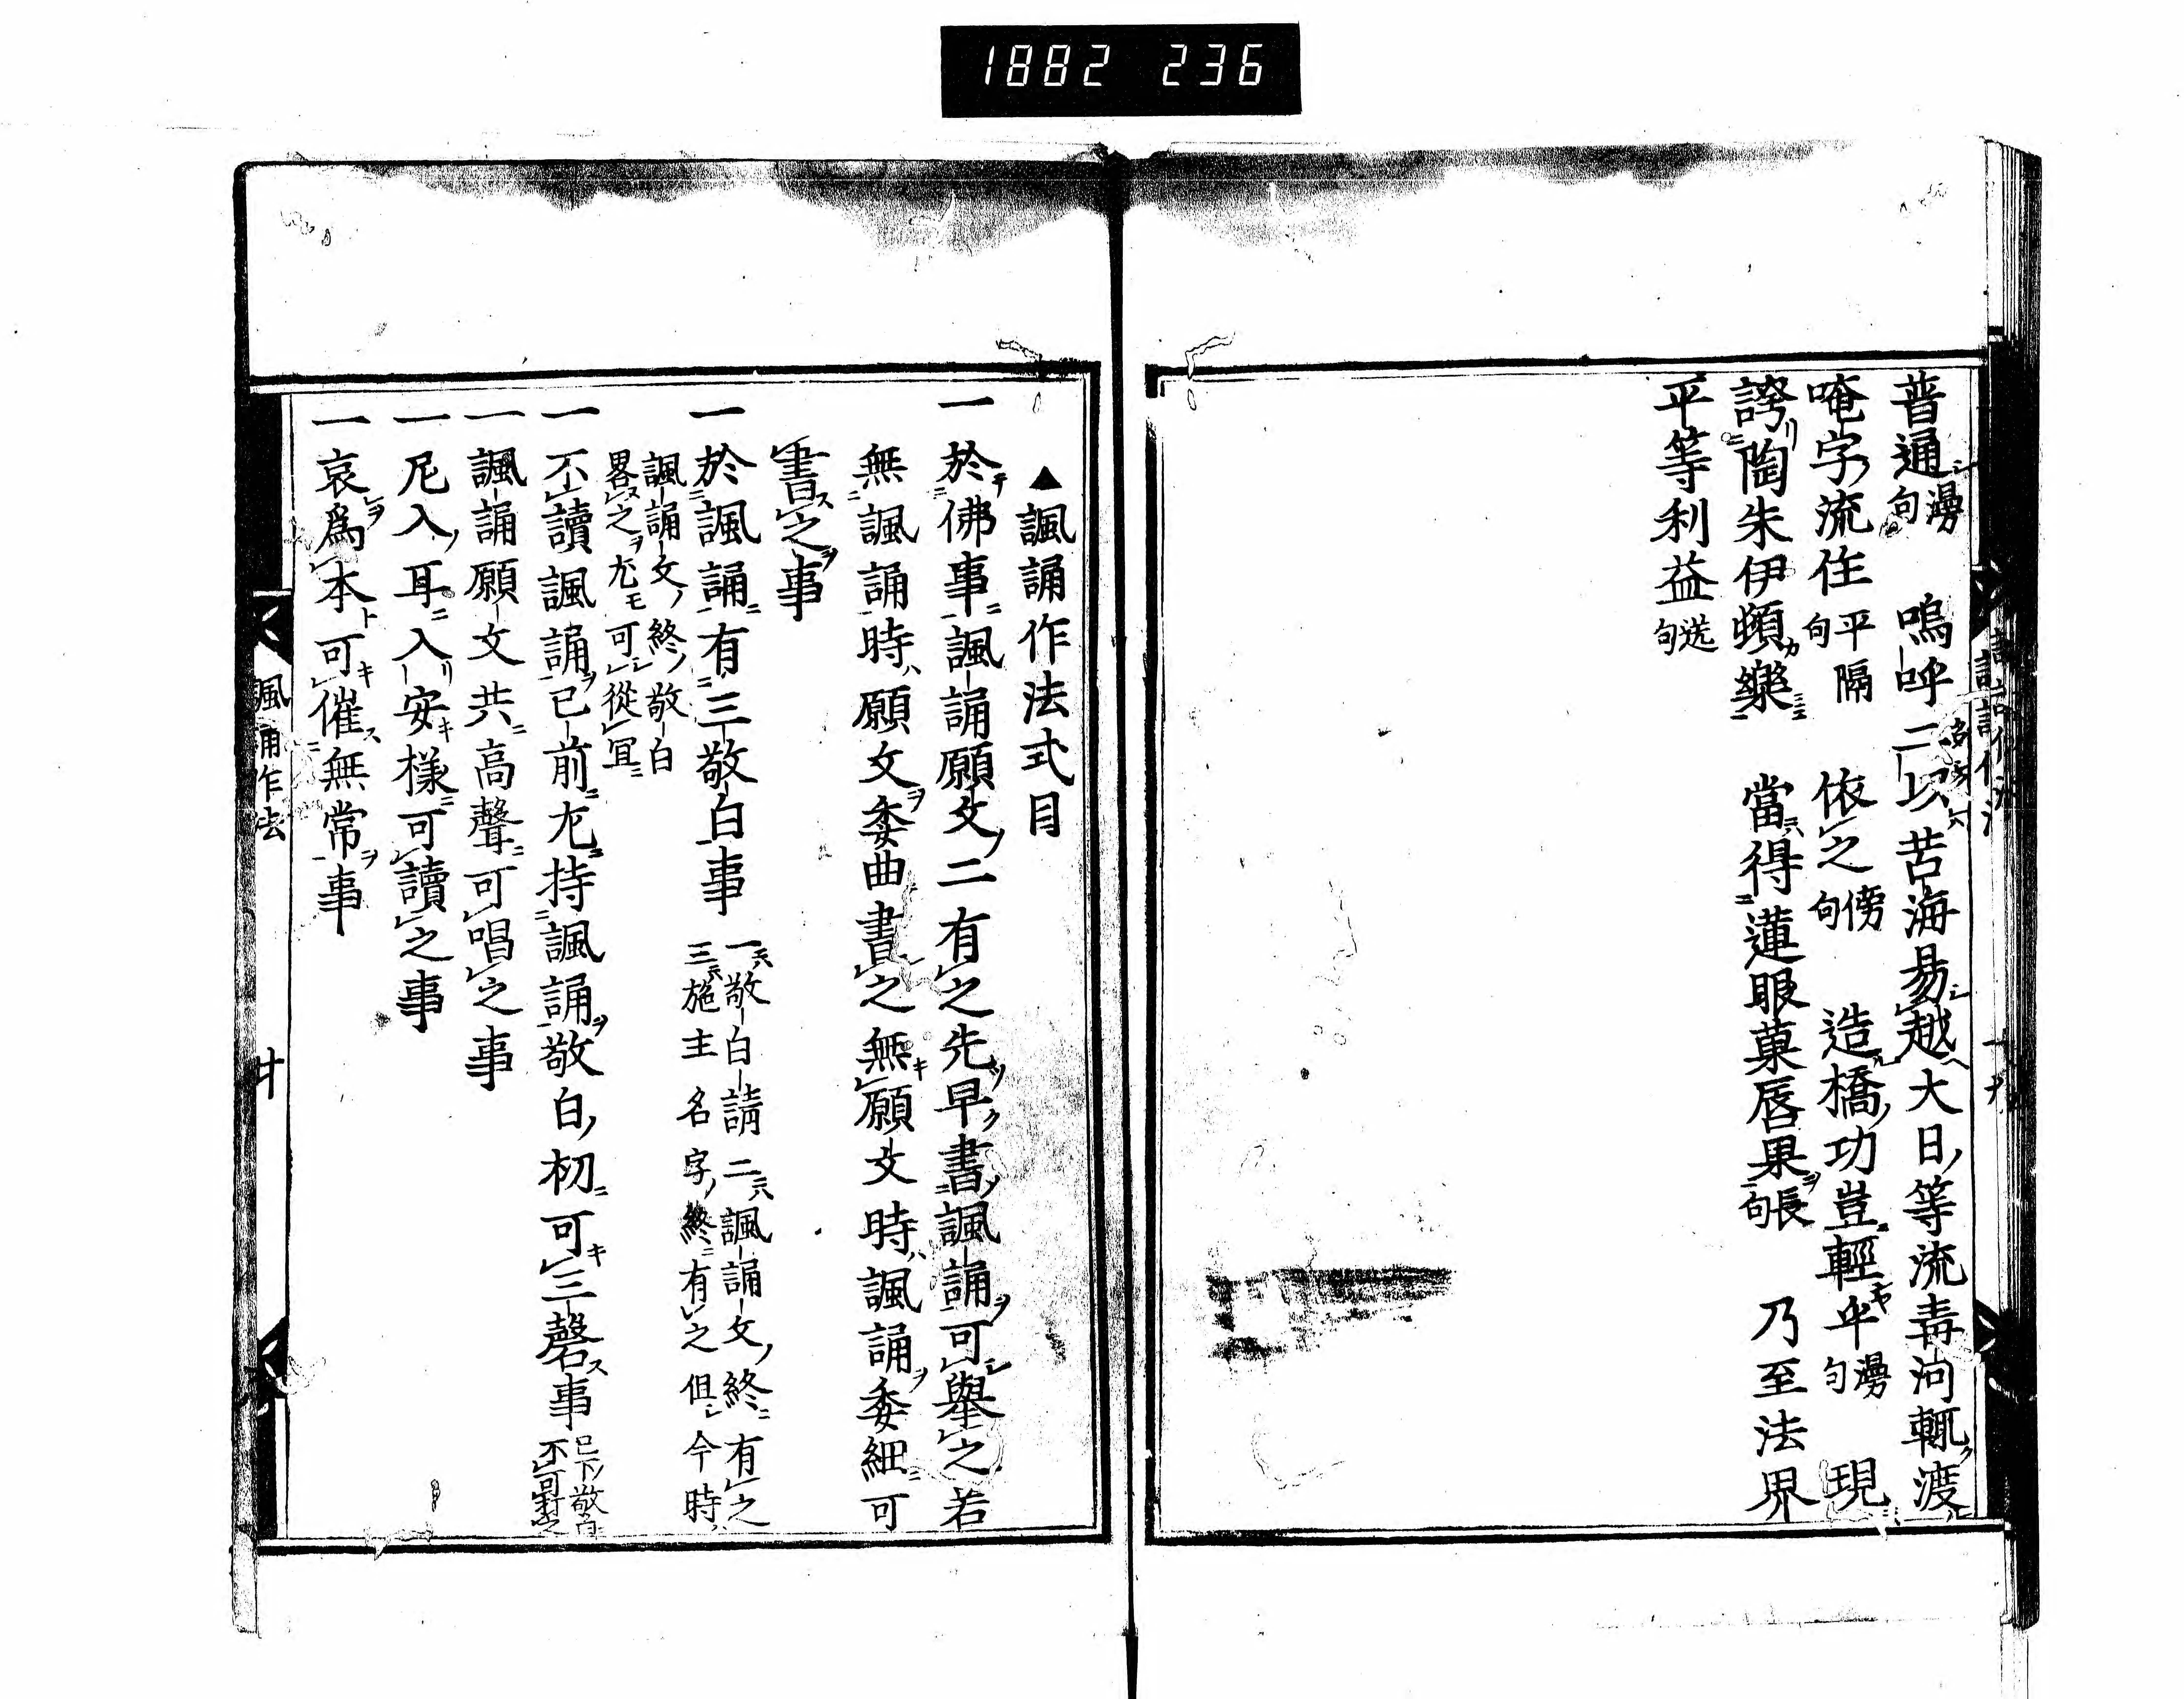 1882 236
普通漫句 嗚呼二以苦海易越大日等流毒河輒渡
唵字流住平隔句 依之傍句 造橋功豈輕乎漫句 現
誇陶朱伊頓樂 當得蓮眼菓唇果長句 乃至法界
平等利益送句
▲諷誦作法式目
一於佛事諷誦願文二有之先早書諷誦可舉之若
無諷誦時願文委曲書之無願文時諷誦委細可
書之事
一於諷誦有三敬白事 一敬白請 二諷誦文終有之
三施主名字終有之但今時
諷誦文終敬白
畧之尤可從冝
一不讀諷誦已前尤持諷誦敬白初可三磬事
一諷誦願文共高聲可唱之事
一尼入耳入安樣可讀之事
一哀爲本可催無常事
諷誦作法
廿